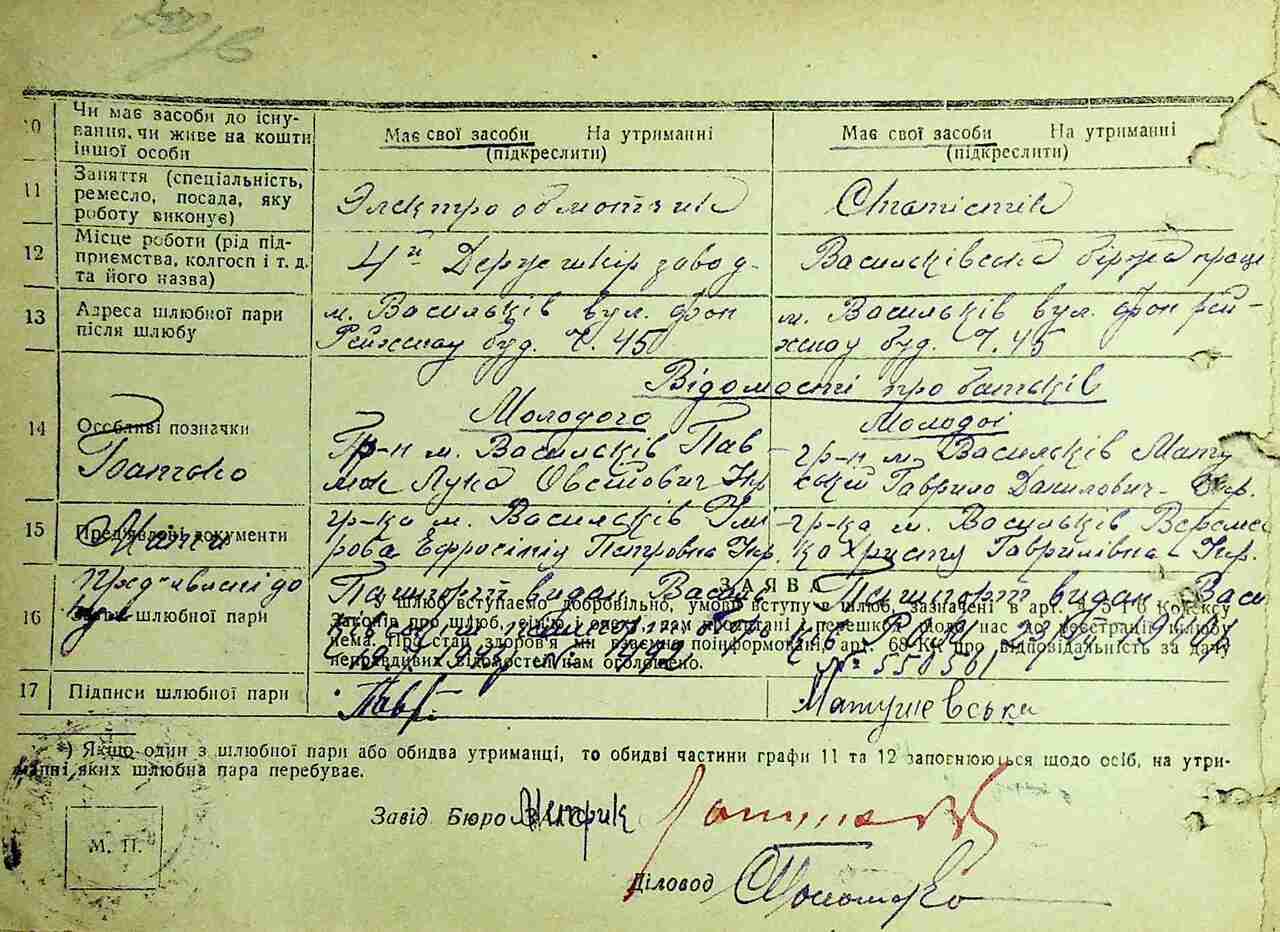 10 Чи має засоби до існу-
вання, чи живе на кошти
іншої особи
Має свої засоби На утриманні
(підкреслити)
Має свої засоби На утриманні
(підкреслити)
11 Заняття (спеціальність,
ремесло, посада, яку
роботу виконує)
Электрообмотчик
Статистик
12 Місце роботи (рід під-
приємства, колгосп і т. д.
та його назва)
4й Держшкірзавод
Васильківська біржа праці
13 Адреса шлюбної пари
після шлюбу
м. Васильків вул. фон
Рейхнау буд. Ч. 45
м. Васильків вул. фон Рей-
хнау буд. Ч. 45
Відомості про батьків
Молодого
Молодої
14 Особливі позначки
Батько
Гр-н м. Васильків Пав
люк Лука Овстович Укр
гр-н м. Васильків Мату
Гаврило Данилович Укр.
15 Пред'явлені документи
Мати
гр-ка м. Васильків
Ефросінія Петровна Укр.
гр-ка м. Васильків Вереме
Христя Гаврилівна Укр.
Пред'явлені до
16 Заява шлюбної пари
ЗАЯВА
Пашпорт видан Василь
Пашпорт видан Васи
У шлюб вступаємо добровільно, умови вступу в шлюб, зазначені в арт. Кодексу
Законів про шлюб, сім'ю і опеку, нам прочитані і перешкод щодо нас до реєстрації шлюбу
нема. Про стан здоров'я ми взаємно поінформовані, арт. 68 КК про відповідальність за дачу
неправдивих відомостей нам оголошено.
№ 550561
17 Підписи шлюбної пари
Павл
Матушевська
*) Якщо один з шлюбної пари або обидва утриманці, то обидві частини графи 11 та 12 заповнюються щодо осіб, на утри-
манні яких шлюбна пара перебуває.
Завід Бюро ЗАГС
М. П.
Діловод